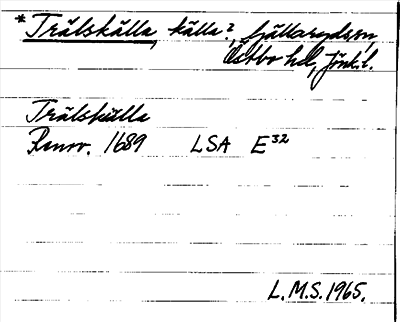 *Trälskälla, källa?, fjällarydssn,
Östbo hd, Jönk.l.
Trälskälla
Renov. 1689 LSA E³²
L.M.S. 1965.